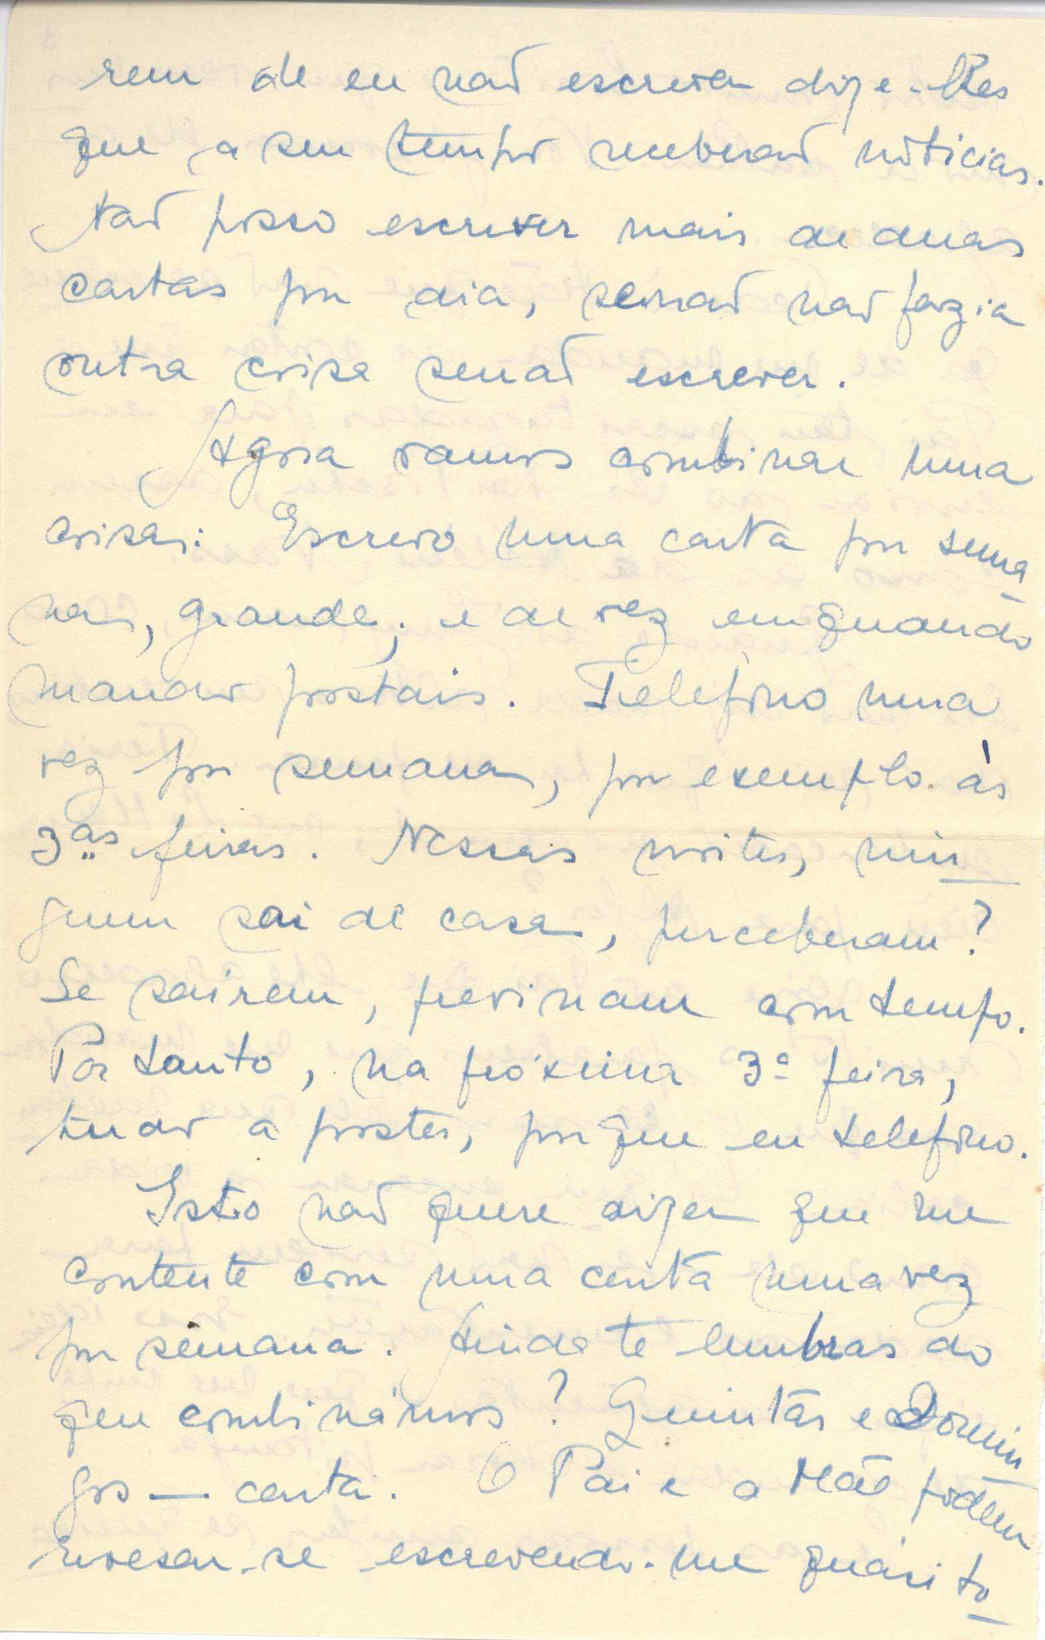 rem de eu não escrever dize-lhes
que a seu tempo receberão nóticias.
Não posso escrever mais de duas
cartas por dia, senão não fazia
outra coisa senão escrever.
Agora vamos combinar uma
coisa: Escrevo uma carta por sema
na, grande; e de vez emquando
mando postais. Telefono uma
vez por semana, por exemplo às
3as feiras. Nessas noites, nin
guem sai de casa, perceberam?
Se sairem, previnam com tempo.
Portanto, na próxima 3ª feira,
tudo a postos, porque eu telefono.
Isto não quere dizer que me
contente com uma carta uma vez
por semana. Ainda te lembras do
que combinámos? Quintas e Domin
gos — carta. O Pai e a Mãe pódem
revesar-se escrevendo-me quási to